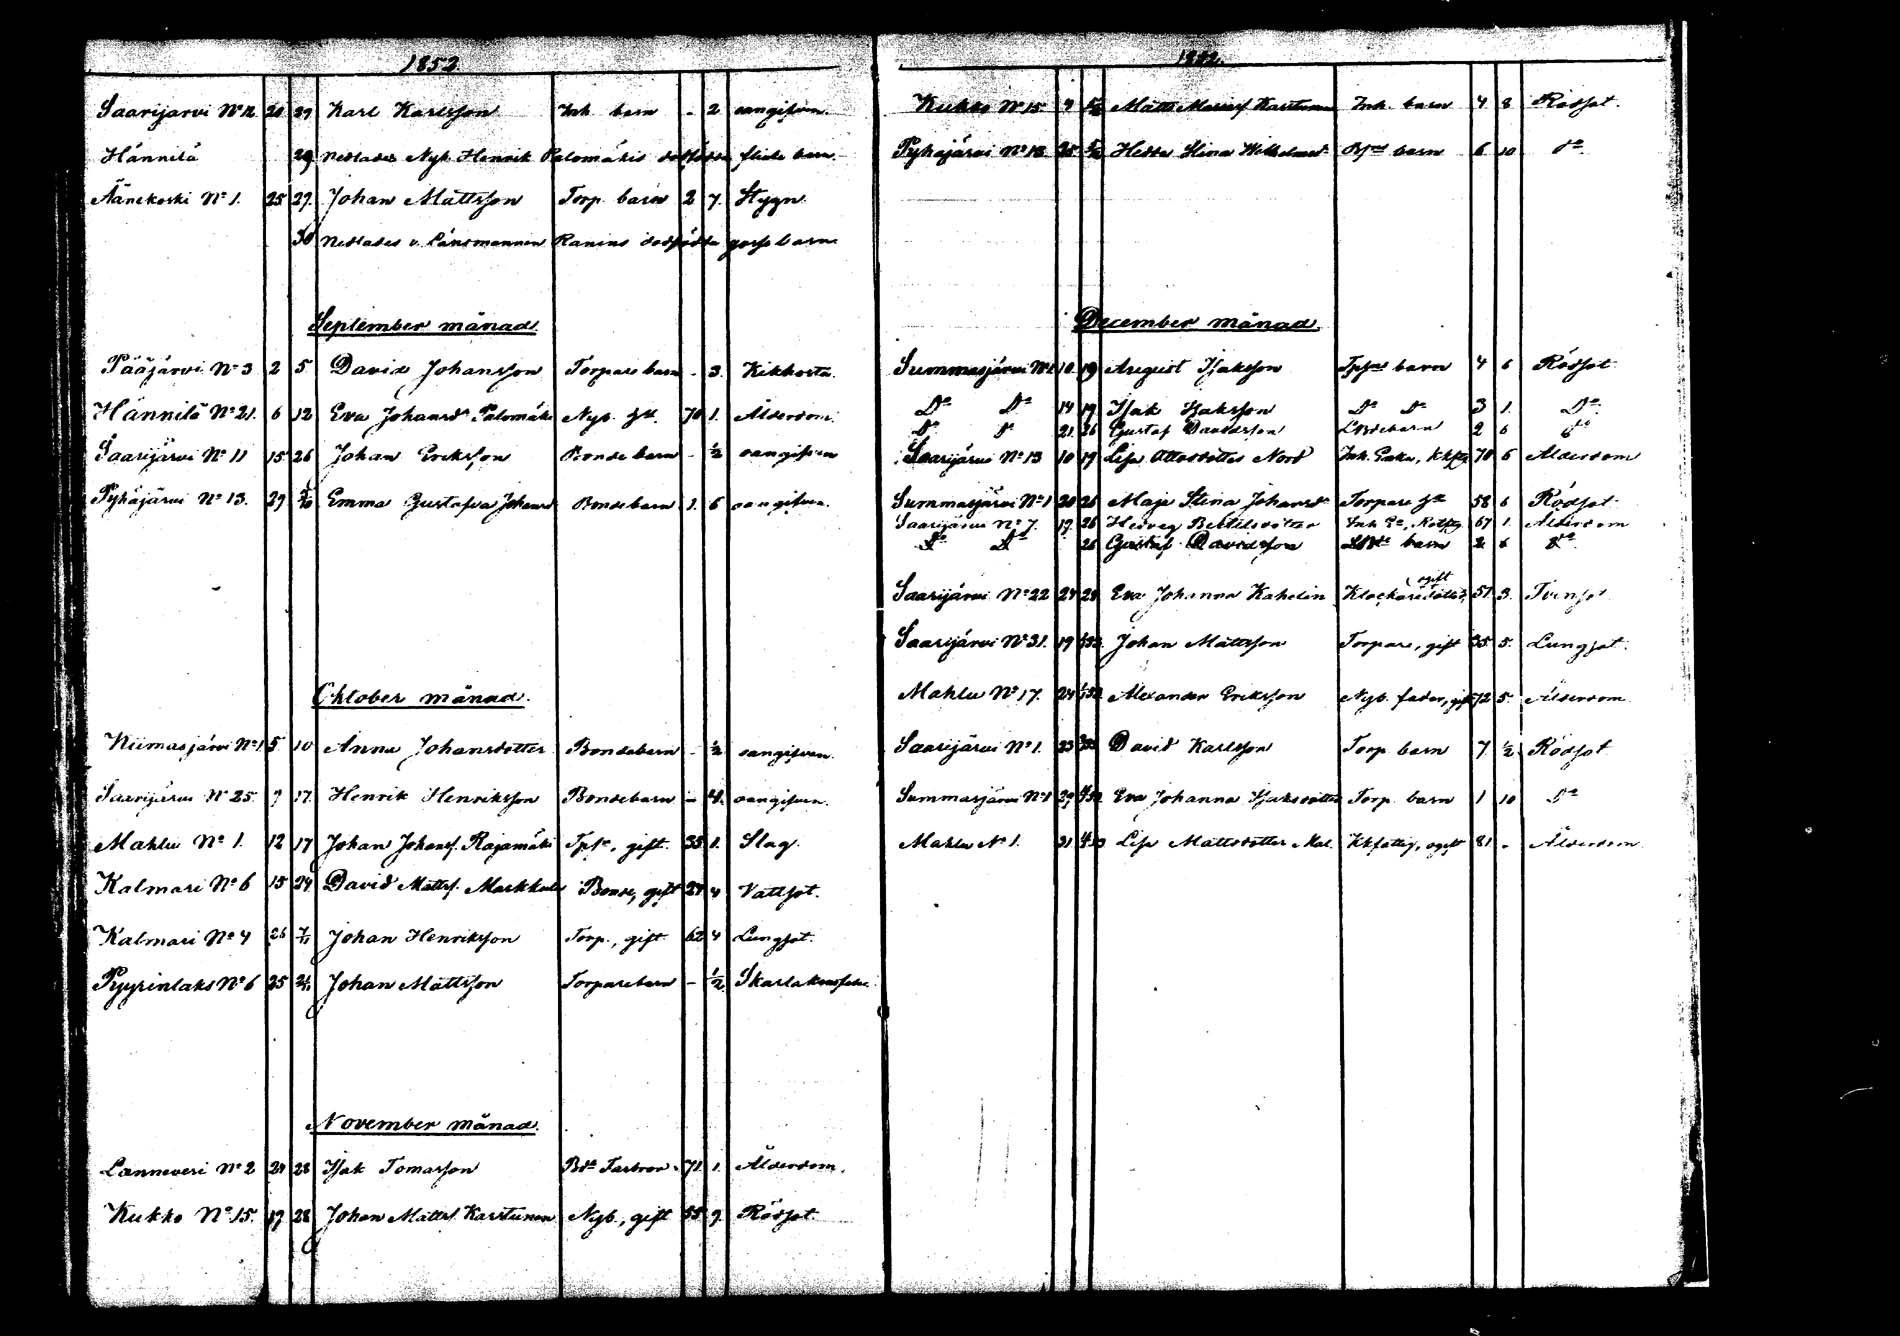 1852
Saarijärvi No 12 20 29 Karl Karlsson Inh. barn - 2 oangifven.
Hännilä 29 Nedlades Nyb. Henrik Palomäkis dödfödda flicke barn.
Äänekoski No 1. 25 29. Johan Mattsson Torp. barn 2 7. Stygn
30 Nedlades v. Länsmannen Ranins dödfödda gosse barn.
September månad
Pääjärvi No 3 2 5 David Johansson Torpare barn - 3. Kikhosta
Hännilä No 21. 6 12 Eva Johansdr Palomäki Nyb. 70 1. Ålderdom.
Saarijärvi No 11 15 26 Johan Eriksson Bonde barn - ½ oangifven
Pyhäjärvi No 13. 29 3/10 Emma Gustafva Johansd. Bondebarn 1. 6 oangifven.
Oktober månad.
Kiimasjärvi No 1. 5 10 Anna Johansdotter Bondebarn - ½ oangifven.
Saarijärvi No 25. 9 17. Henrik Henriksson Bondebarn - 4. oangifven.
Mahlu No 1. 12 17 Johan Johanss. Rajamäki Tpre, gift. 35 1. Slag.
Kalmari No 6 15 24 David Mattss. Markkula Bonde, gift 27 4 Vattsot.
Kalmari No 4 26 7/11 Johan Henriksson Torp., gift 62 4 Lungsot.
Pyyrinlaks No 6 25 21/11 Johan Mattsson Torparebarn - ½ Skarlakansfeber
November månad.
Lanneveri No 2 24 28 Isak Tomasson Bds Farbror 71. 1. Ålderdom.
Kukko No 15. 19 28 Johan Mattss. Karstunen Nyb., gift 55 9. Rödsot.
1852.
Kukko No 15 4 5/12 Matts Mattss. Karstunen Inh. barn 4 8 Rödsot.
Pyhäjärvi No 13 25 5/12 Hedda Stina Wilhelmsd. barn 6 10 Do
December månad.
Summasjärvi No 1 10 19 August Isaksson barn 4 6 Rödsot
Do Do 14 19. Isak Isaksson Do Do 3 1. Do
Do Do 21. 26 Gustaf Davidsson barn 2 6 Do
Saarijärvi No 13 10 19 Lisa Ottosdotter Nord Inh. Enka, 70 6 Ålderdom
Summasjärvi No 1 20 26 Maja Stina Johansdr Torpare 58 6 Rödsot
Saarijärvi No 7. 17. 26 Hedveg Bertilsdotter Inh. 67 1. Ålderdom
Do Do 26 Gustaf Davidsson barn 2 Do
Saarijärvi No 22 24 28 Eva Johanna Kahelin Klockaredotter, ogift 57 3. Tvinsot
Saarijärvi No 31. 19 Johan Mattsson Torpare, gift 35 5. Lungsot.
Mahlu No 17. 24 Alexander Eriksson Nyb. fader, gift 72 5. Ålderdom
Saarijärvi No 1. 23 David Karlsson Torp. barn 7 ½ Rödsot
Summasjärvi No 1 29 Eva Johanna Isaksdotter Torp. barn 1 10 Do
Mahlu No 1. 31 Lisa Mattsdotter Kkfattig, ogift 81 - Ålderdom